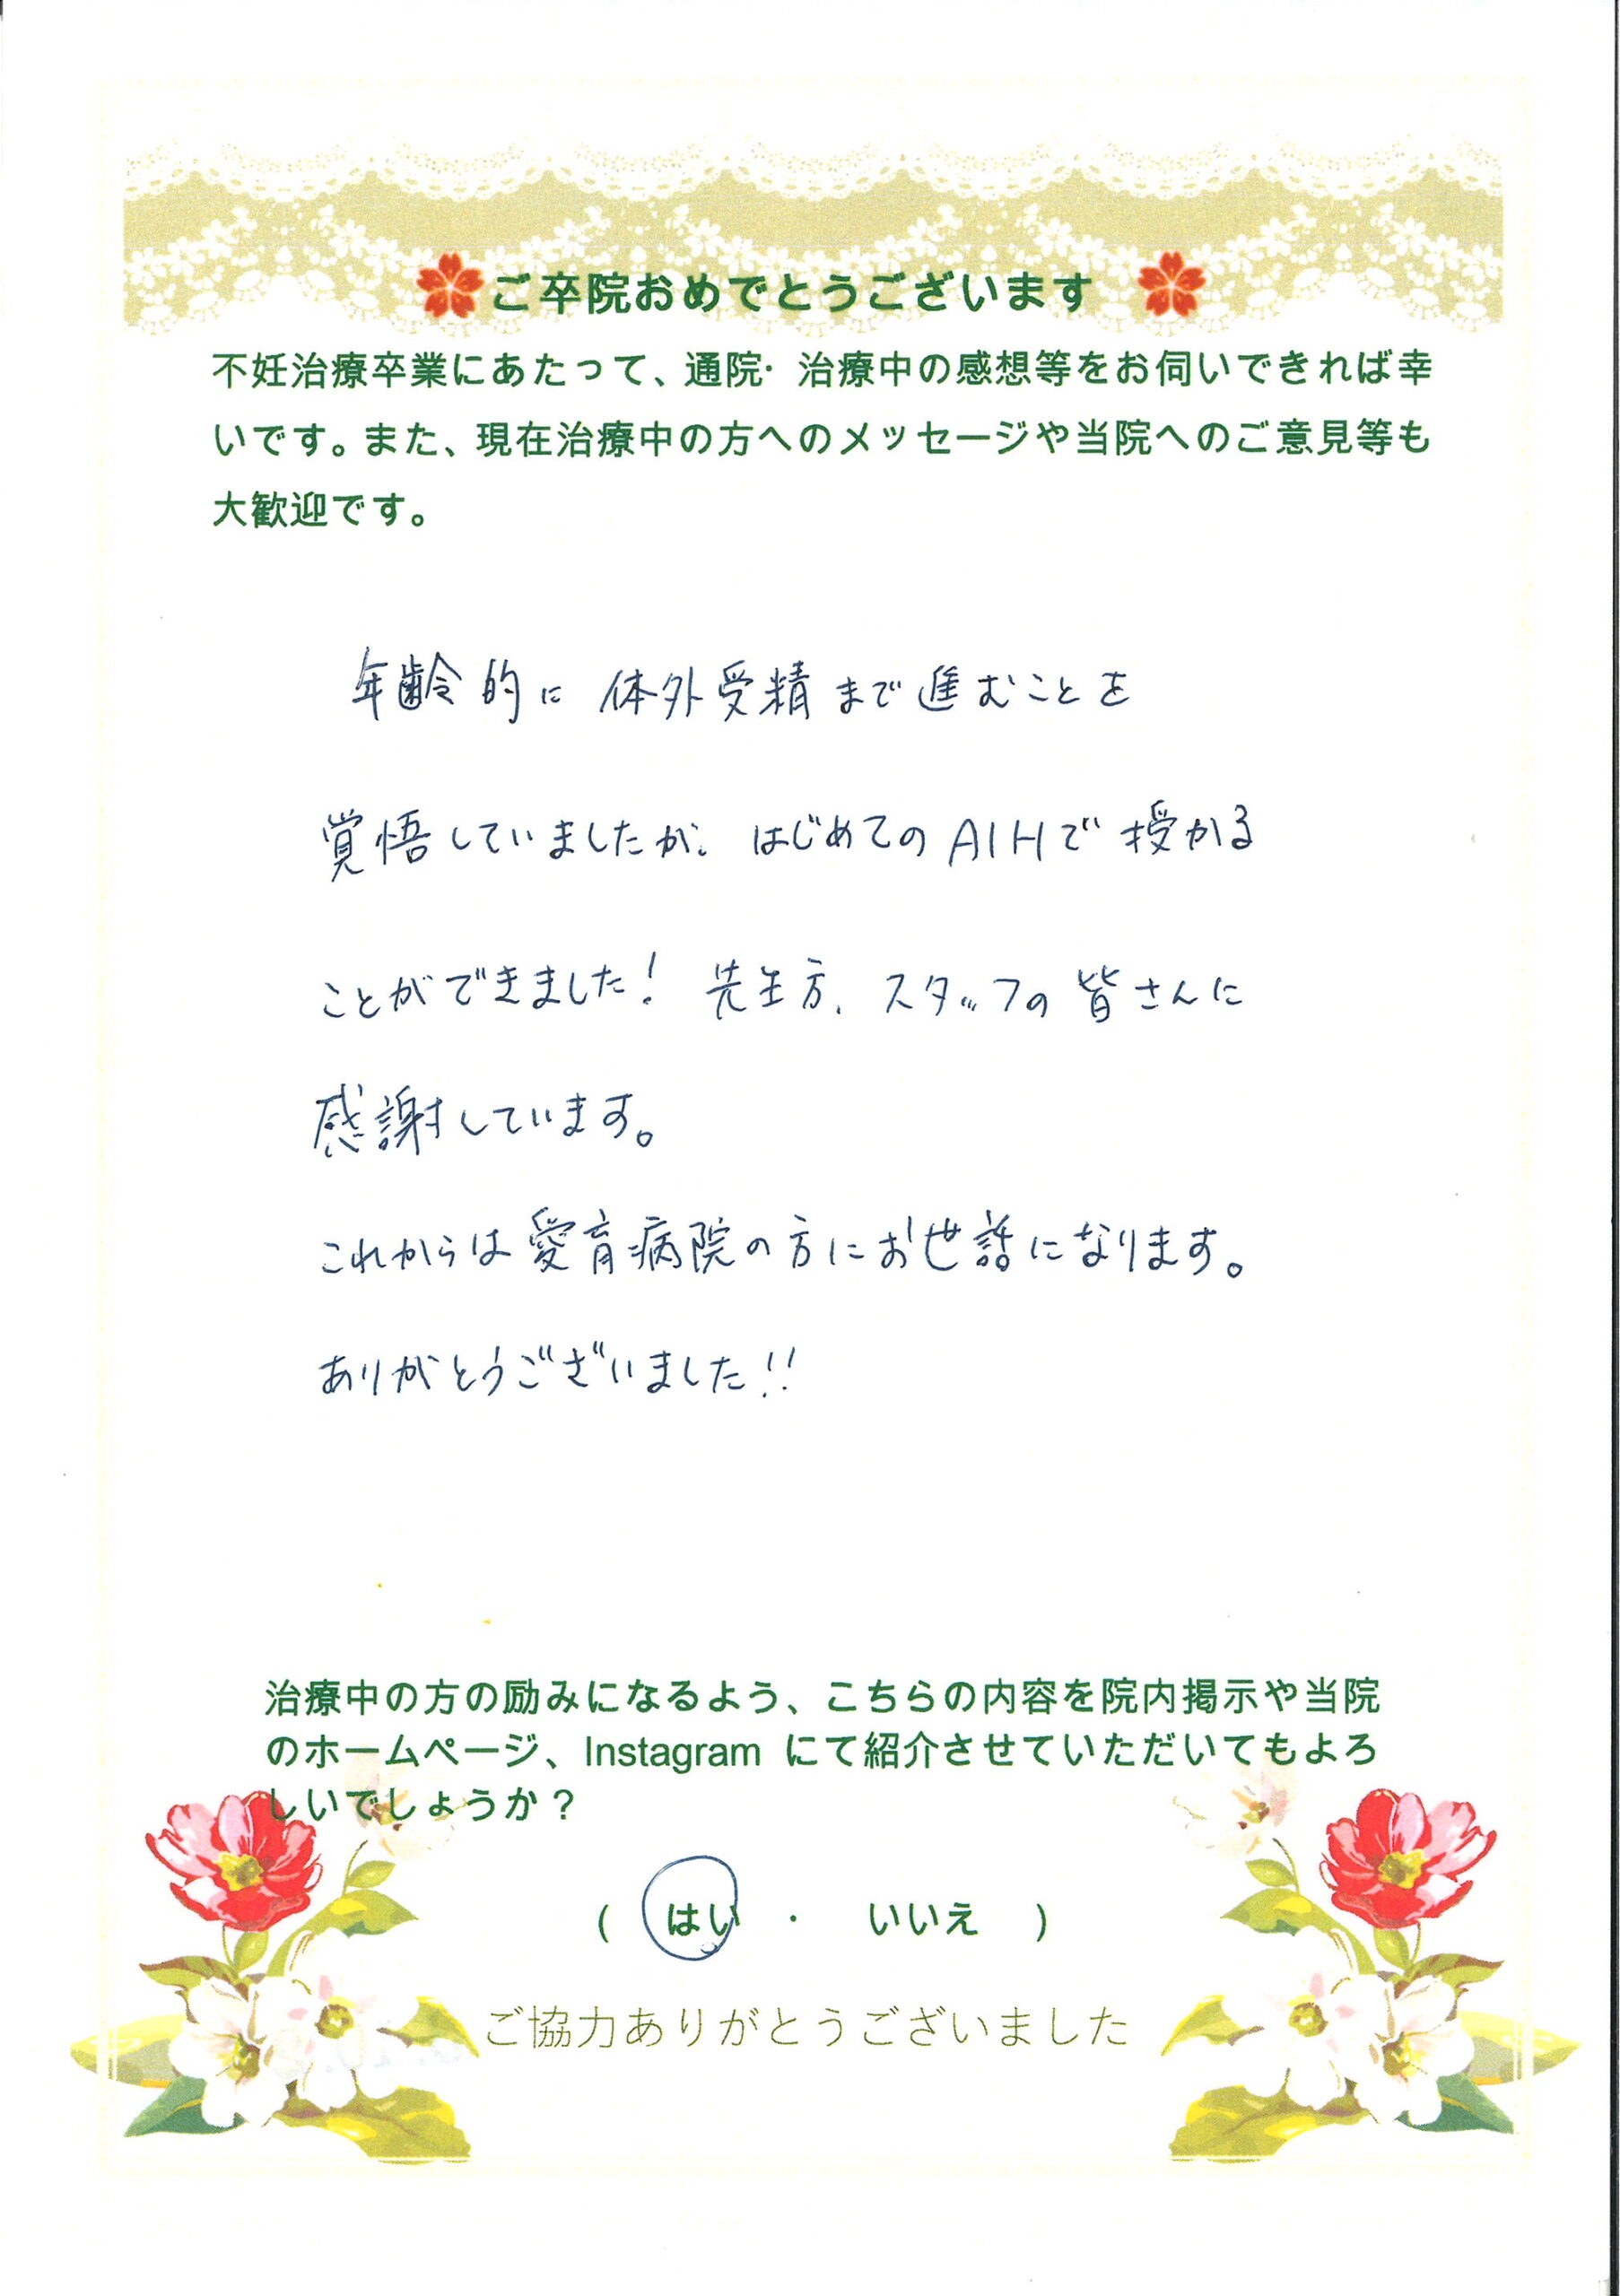 ご卒院おめでとうございます
不妊治療卒業にあたって、通院・治療中の感想等をお伺いできれば幸
いです。また、現在治療中の方へのメッセージや当院へのご意見等も
大歓迎です。
年齢的に体外受精まで進むことを
覚悟していましたが、はじめてのAIHで授かる
ことができました！先生方、スタッフの皆さんに
感謝しています。
これからは愛育病院の方にお世話になります。
ありがとうございました!!
治療中の方の励みになるよう、こちらの内容を院内掲示や当院
のホームページ、Instagram にて紹介させていただいてもよろ
しいでしょうか？
( はい ・ いいえ )
ご協力ありがとうございました